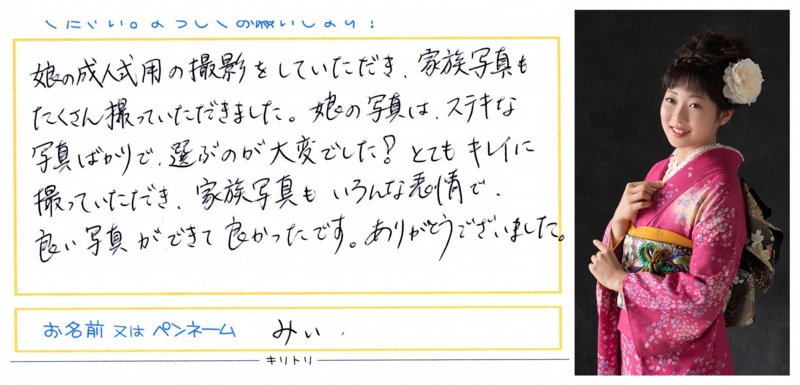 ください。よろしくお願いします！
娘の成人式用の撮影をしていただき、家族写真も
たくさん撮っていただきました。娘の写真は、ステキな
写真ばかりで、選ぶのが大変でした？とてもキレイに
撮っていただき、家族写真もいろんな表情で、
良い写真ができて良かったです。ありがとうございました。
お名前又はペンネーム みぃ.
キリトリ